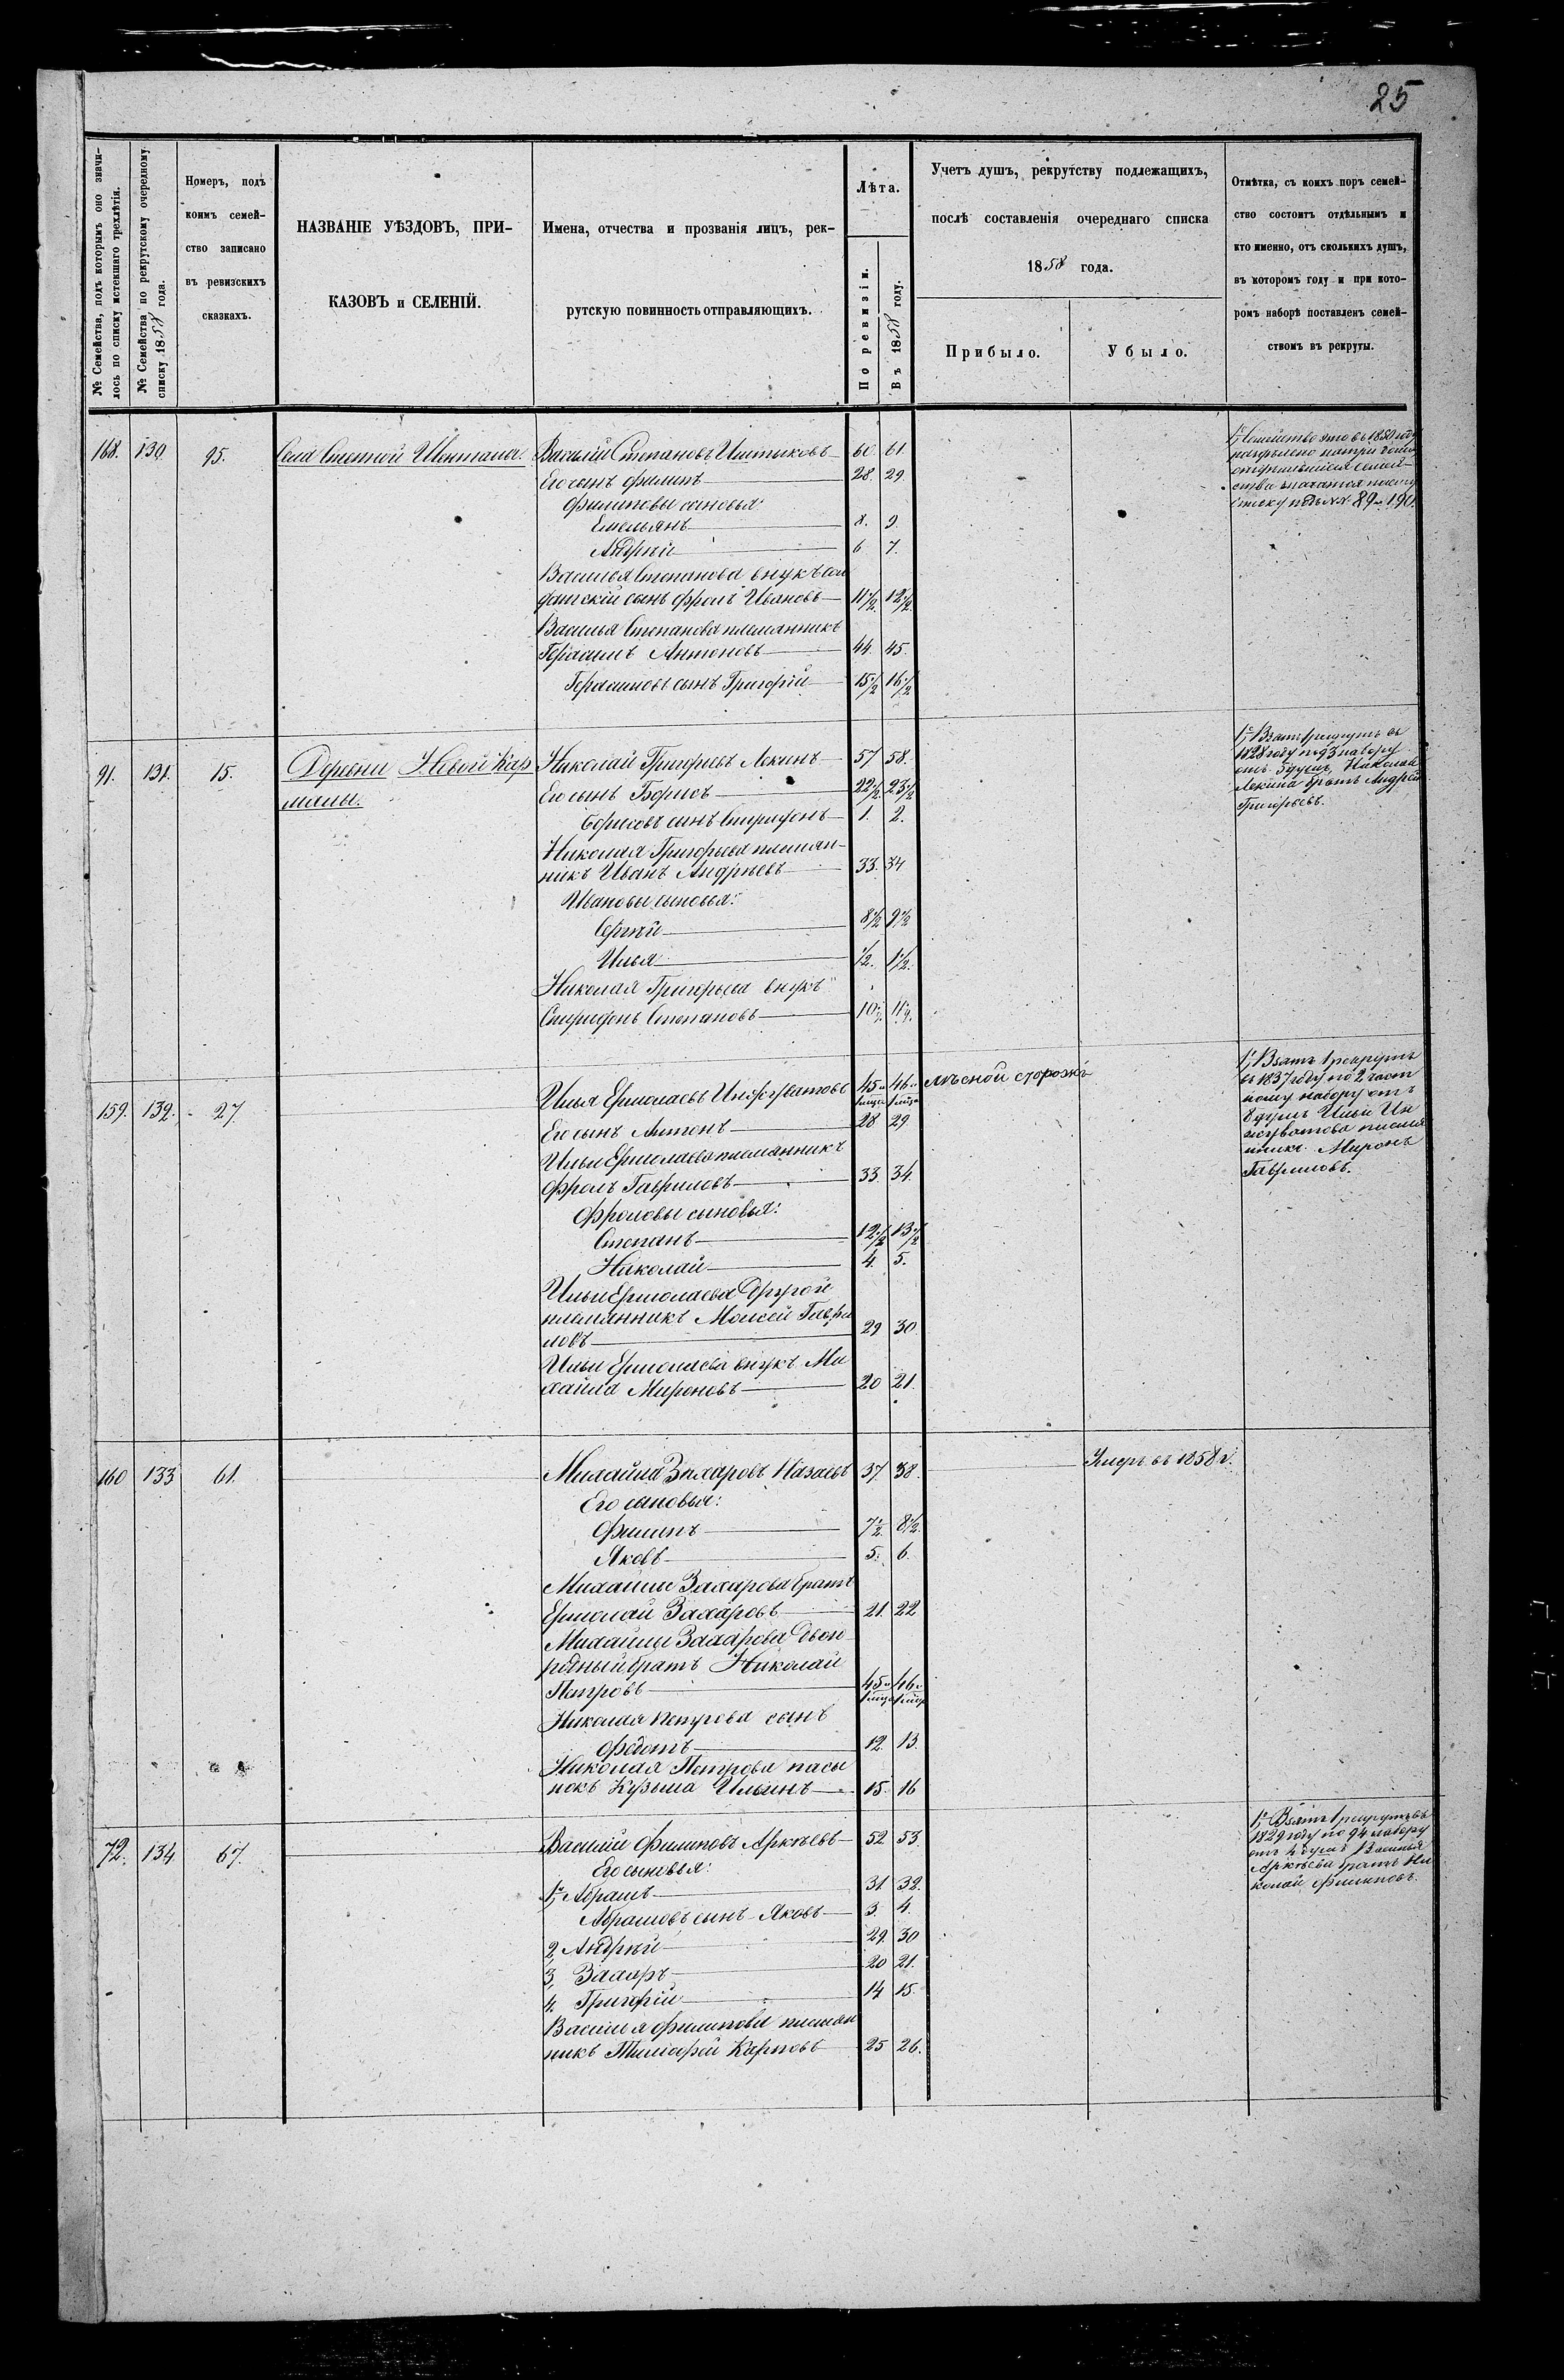 25
№ Семейства, подъ которымъ оно значи-
лось по списку истекшаго трехлѣтія.
№ Семейства по рекрутскому очередному
списку 1858 года.
Номеръ, подъ
коимъ семей-
ство записано
въ ревизскихъ
сказкахъ.
НАЗВАНІЕ УѢЗДОВЪ, ПРИ-
КАЗОВЪ и СЕЛЕНІЙ.
Имена, отчества и прозванія лицъ, рек-
рутскую повинность отправляющихъ.
Лѣта.
По ревизіи.
Въ 1858 году.
Учетъ душъ, рекрутству подлежащихъ,
послѣ составленія очереднаго списка
1858 года.
Прибыло.
Убыло.
Отмѣтка, съ коихъ поръ семей-
ство состоитъ отдѣльнымъ и
кто именно, отъ сколькихъ душъ,
въ котором году и при кото-
ромъ наборѣ поставленъ семей-
ствомъ въ рекруты.
168. 130. 95. Села Степной Шентала. Василій Степановъ 60. 61.
Его сынъ Филипъ 28. 29
Филиповы сыновья:
Емельянъ 8. 9.
Андрей 6 7.
Василья Степанова внукъ сол
датскій сынъ Фролъ Ивановъ 11½. 12½.
Василья Степанова племянникъ
Герасимъ Антоновъ 44. 45.
Герасимовъ сынъ Григорій 15½ 16½
1, Семейство это въ 1850 году
раздѣлено на три
отдѣлившійся семей-
ства значатся по сему
списку подъ №№ 89 и 190.
91. 131. 15. Деревни Новой Кар
малы. Николай Григорьевъ Лекинъ 57 58.
Его сынъ Борисъ 22½. 23½
Борисовъ сынъ Спиридонъ 1. 2.
Николая Григорьева племян-
никъ Иванъ Андреевъ 33. 34
Ивановы сыновья:
Сергѣй 8½ 9½
Илья ½. 1½.
Николая Григорьева внукъ
Спиридонъ Степановъ 10½. 11½.
1, Взятъ 1 рекрутъ въ
1828 году по 93 набору
отъ 5 душъ Николая
Лекина братъ Андрей
Григорьевъ.
159. 132. 27. Илья Ермолаевъ 45 и 46 и лѣсной сторожъ
Его сынъ Антонъ 28 29
Ильи Ермолаева племянникъ
Фролъ Гавриловъ 33. 34.
Фроловы сыновья:
Степанъ 12½ 13½
Николай 4. 5.
Ильи Ермолаева другой
племянникъ Моисей Гаври
ловъ 29 30
Ильи Ермолаева внукъ Ми
хайла Мироновъ 20 21.
1, Взятъ 1 рекрутъ
въ 1837 году по 2 част
ному набору отъ
8 душъ Ильи Ин
племян
никъ Миронъ
Гавриловъ.
160 133 61. Михайла Захаровъ 37. 38. Умеръ въ 1858 г.
Его сыновья:
Филипъ 7½. 8½.
Яковъ 5. 6.
Михайлы Захарова братъ
Ермолай Захаровъ 21. 22
Михайлы Захарова двою
родный братъ Николай
Петровъ 45 и 46 и
Николая Петрова сынъ
Федотъ 12. 13.
Николая Петрова пасы
нокъ Кузьма Ильинъ 15. 16
72. 134 67. Василій Филиповъ Аркѣевъ 52 53.
Его сыновья:
1, Абрамъ 31 32.
Абрамовъ сынъ Яковъ 3. 4.
2, Андрей 29. 30
3, Захаръ 20 21.
4. Григорій 14 15.
Василья Филипова племян
никъ Тимофей Карповъ 25 26.
1, Взятъ 1 рекрутъ въ
1829 году по 94 набору
отъ 4 душъ Василья
Аркѣева братъ Ни
колай Филиповъ.